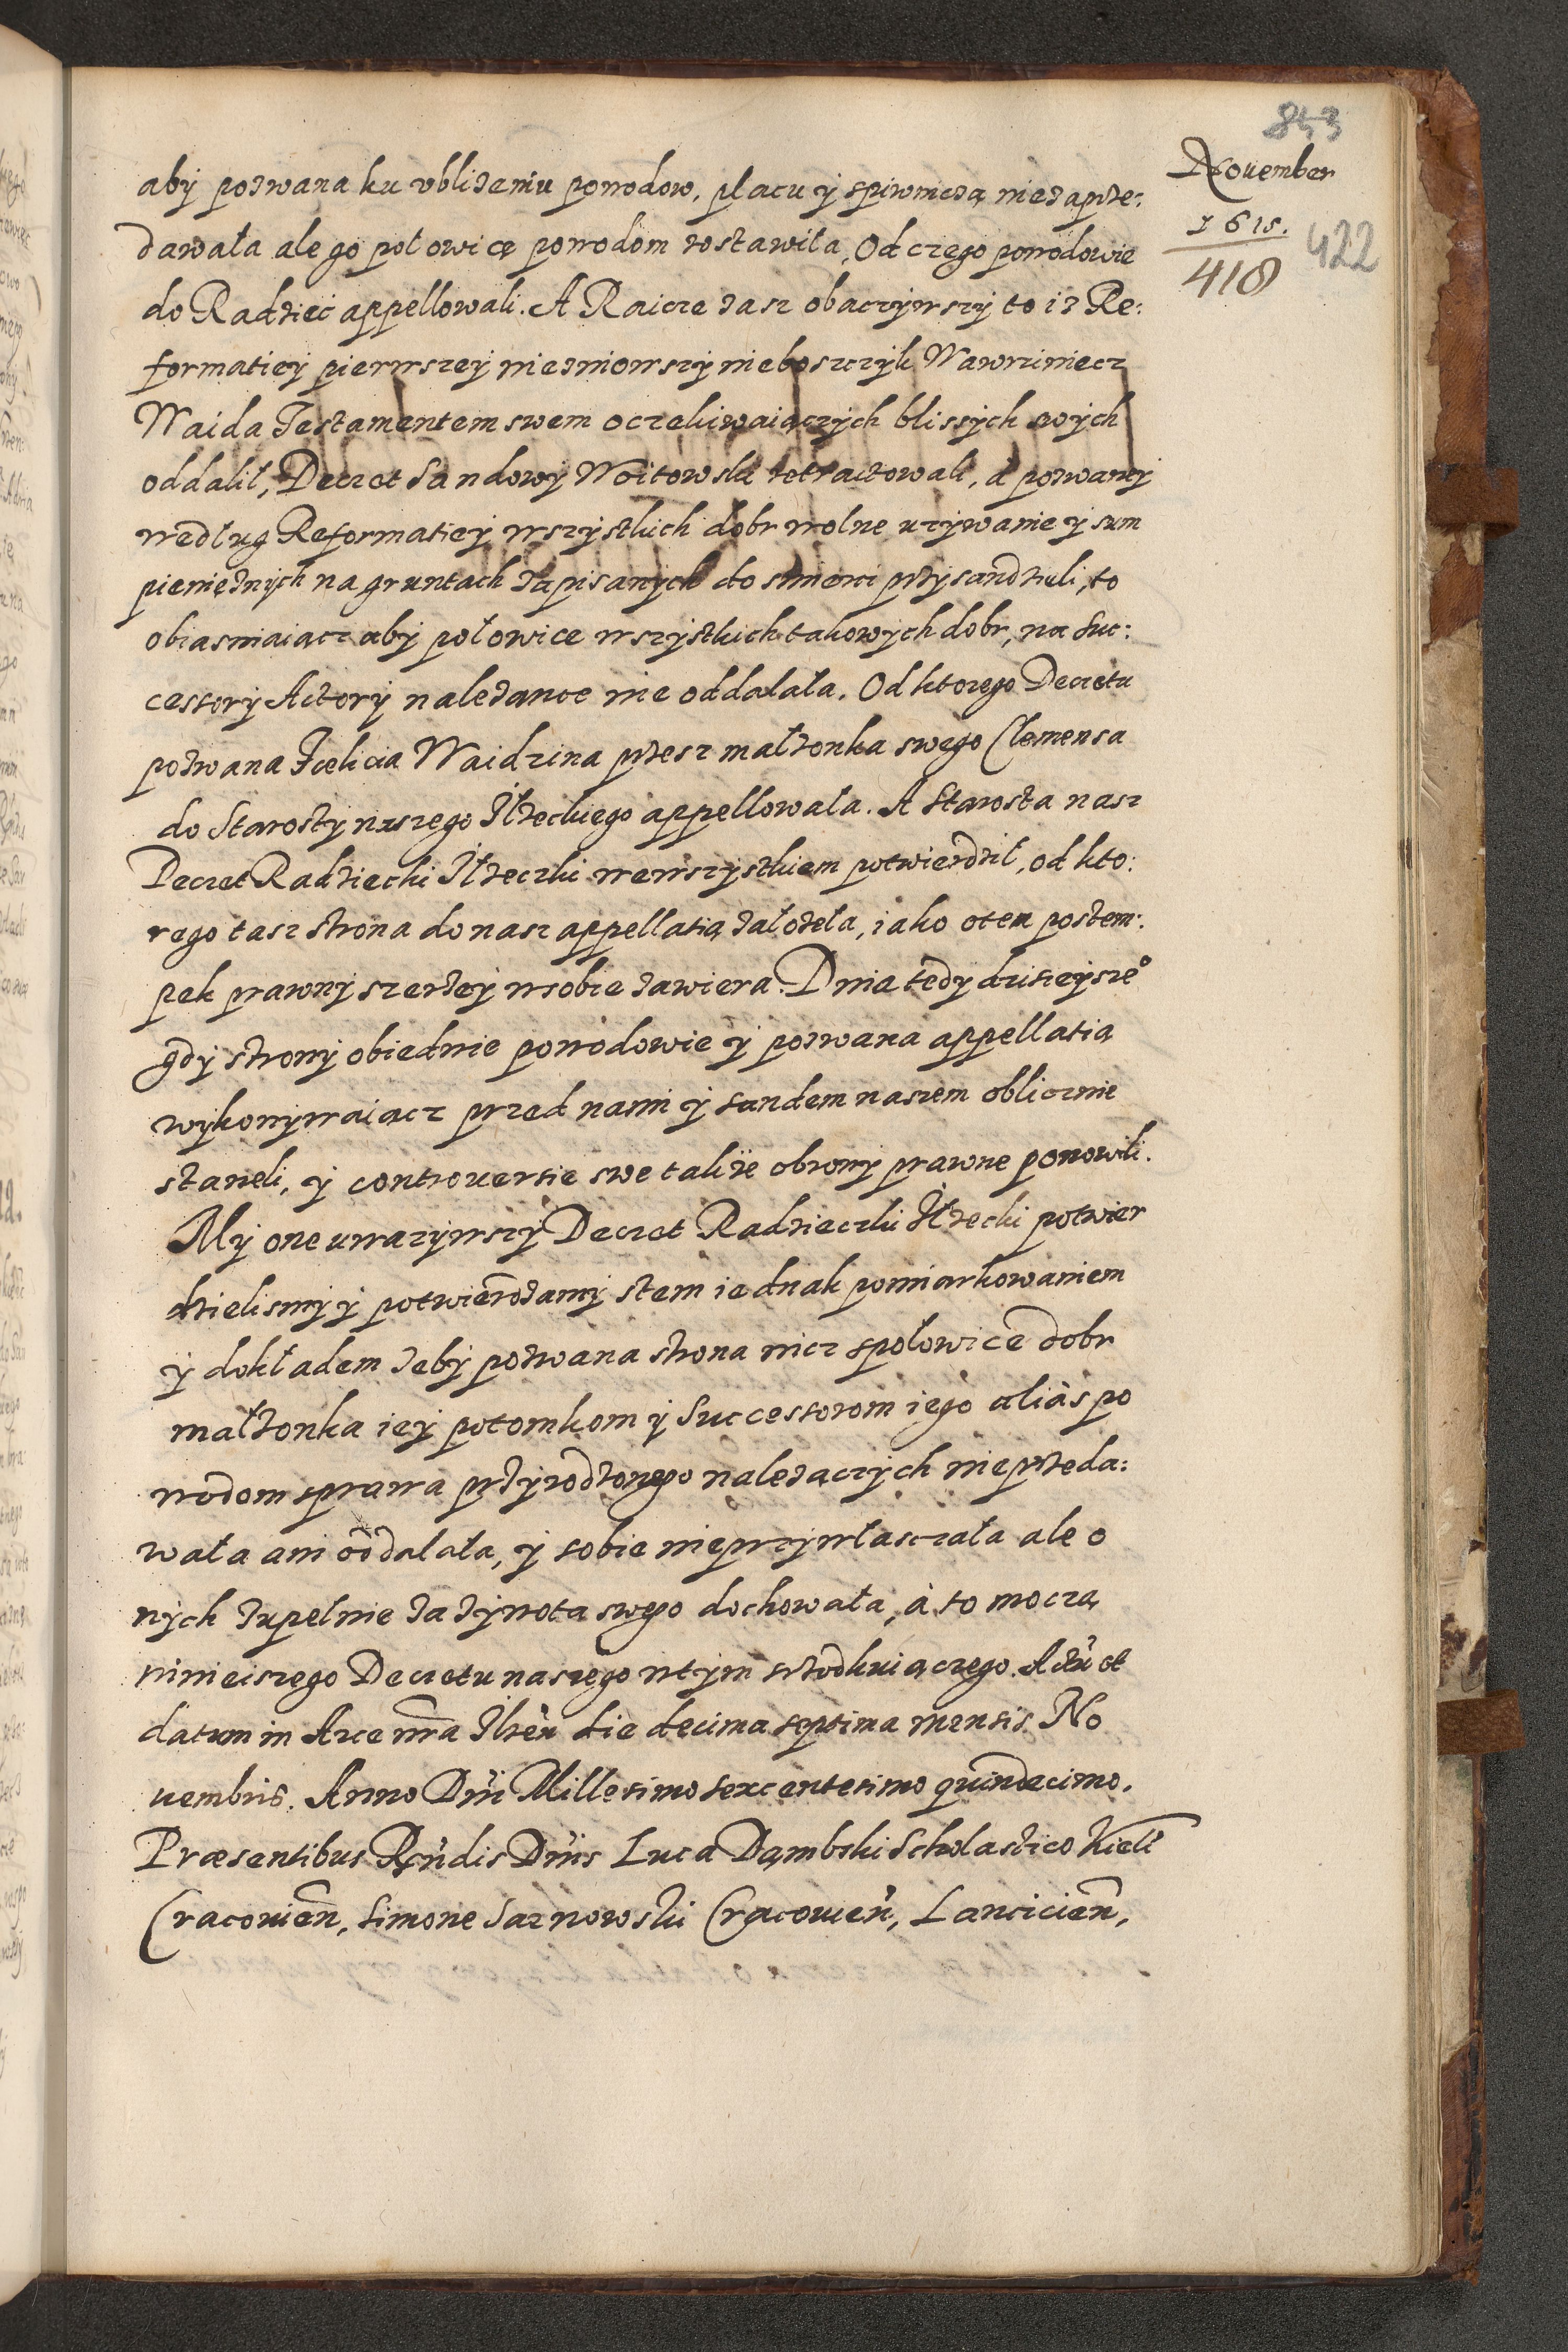 853
November
1615.
418
422
aby pozwana ku ubliżeniu powodow, płacu y spiwnicżą niezaprże:
dawała ale go połowicę powodom zostawiła, Od czego powodowie
do Radziec appellowali. A Raicze zasz obaczÿwszÿ to iż Re:
formatieÿ pierwszeÿ nieżniowszÿ nieboszczÿk Wawrziniecz
Waida Testamentem swem oczekiwaiączÿch blissÿch swÿch
oddalił, Decret Sandowÿ Woitowski retractowali, à pozwaneÿ
według Reformatieÿ wszÿstkich dobr wolne użÿwanie ÿ sum
pieniężnÿch na gruntach zapisanÿch do śmierci prżÿsandzieli, to
obiasniaiącz abÿ połowice wszÿstkich takowÿch dobr, na Suc:
cessorÿ Actorÿ należance nie oddalała. Od ktorego Decretu
pozwana Felicia Waidzina przesz małżonka swego Clemensa
do Starostÿ naszego Iłżeckiego appellowała. A Starosta nasz
Decret Radziecki Iłżeczki wewszÿstkiem potwierdził, od kto:
rego tasz strona do nasz appellatią założeła, iako otem postem:
pek prawnÿ szerzeÿ wsobie zawiera. Dnia tedÿ dzisieÿszeº
gdÿ stronÿ obiednie powodowie ÿ pozwana appellatią
wÿkonÿwaiącz przed nami ÿ sandem naszem oblicznie
staneli, ÿ controuersie swe także obronÿ prawne ponowili.
Mÿ one uważÿwszÿ Decret Radzieczki Iłżecki potwier
dzielismÿ ÿ potwierdzamÿ stem iednak pomiarkowaniem
ÿ dokładem żebÿ pozwana strona nicz społowice dobr
małżonka ieÿ potomkom ÿ Successorom iego aliàs po
wodom sprawa prżÿrodzonego należączÿch nieprżeda:
wała ani oddalała, ÿ sobie nieprzÿwłasczała ale o
nÿch zupełnie za żÿwota swego dochowała, à to moczą
ninieiszego Decretu naszego wtÿm szrodkuiączego. Actũ et
datum in Arce nrã Ilżeñ die decima septima mensis No
uembris. Anno Dñi Millesimo sexcentesimo quindecimo.
Præsentibus Rñdis Dñis Luca Dąmbski Scholastico Kielc̃
Cracouieñ, Simone Sarnowski Cracouieñ, Lancicieñ,